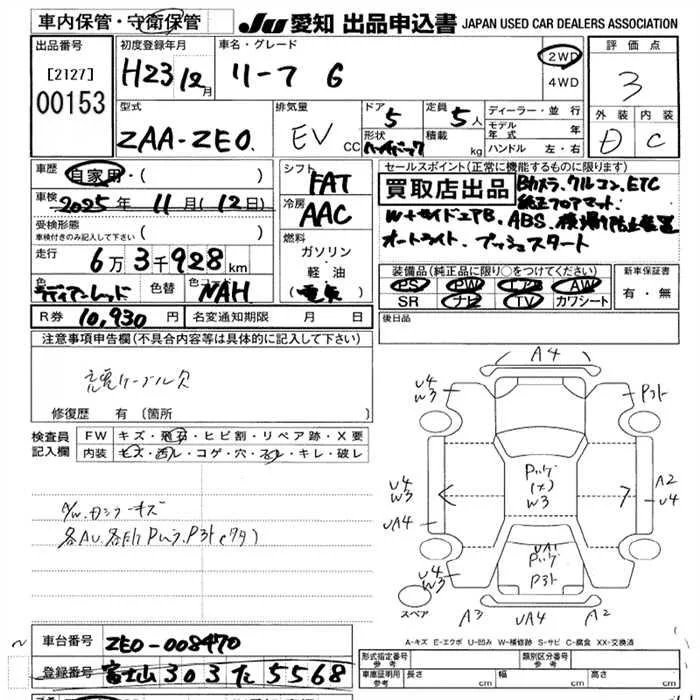 車内保管・守衛保管 JU 愛知 出品申込書 JAPAN USED CAR DEALERS ASSOCIATION
出品番号 初度登録年月 車名・グレード 評価点
[2127] H23 12月 リーフ G 2WD 3
00153 4WD
型式 排気量 ドア 5 定員 5人 ディーラー・並行 外装 内装
ZAA-ZE0 EV CC 形状 ハッチバック 積載 kg モデル年式 年 D C
ハンドル 左・右
車歴 自家用・( ) シフト FAT セールスポイント(正常に機能するものに限ります)
車検 2025年 11月(12日) 冷房 AAC 買取店出品 Bカメラ、クルコン、ETC
純正フロアマット、
受検形態 ( ) W+サイドエアB、ABS、横滑り防止装置
車検付きのみ記入して下さい 燃料 オートライト、プッシュスタート
走行 6万3千928km ガソリン・軽油 (電気)
装備品(純正品に限り○をつけてください) 新車保証書
色 ラディアンレッド 色替 色コード NAH PS PW エアB AW 有・無
SR ナビ TV カワシート
R券 10,930円 名変通知期限 月 日 後日品
注意事項申告欄(不具合内容等は具体的に記入して下さい)
充電ケーブル欠
修復歴 有 (箇所 )
検査員記入欄 FW キズ・飛石・ヒビ割・リペア跡・X要
内装 キズ・汚レ・コゲ・穴・スレ・キレ・破レ
A4
U4
W3
Pスト
Pハゲ
(大)
W3
U4
W3
A2
U4
UA4
UA1
Pハゲ
Pスト
U4
W3
スペア
A3 UA4 A2
A-キズ E-エクボ U-凹み W-補修跡 S-サビ C-腐食 XX-交換済
車台番号 ZE0-008470
登録番号 富士山 303 た 5568
形式指定番号 参考 類別区分番号 参考
車庫証明用 参考 長さ 幅 高さ